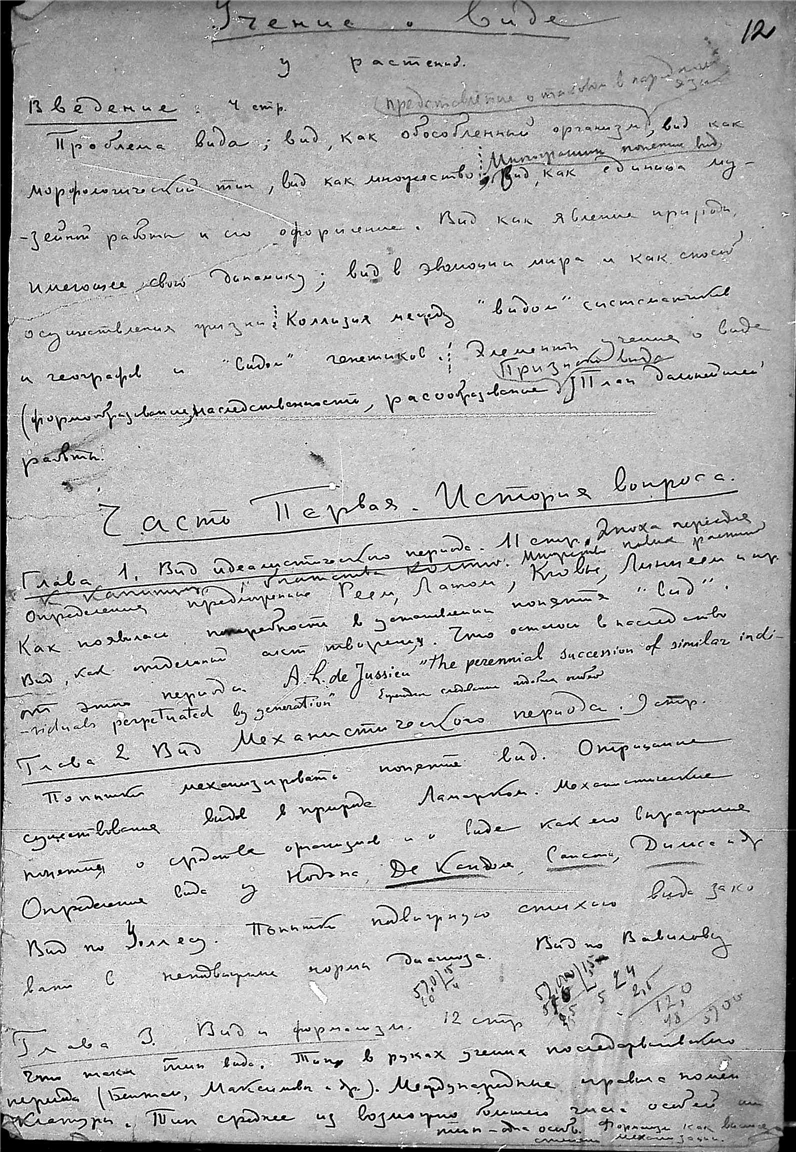 Учение о виде
12
у растений.
Введение. 4 стр.
(представление о таковом в народном
языке
Проблема вида; вид, как обособленный организм, вид как
Многогранность понятия вид
морфологический тип, вид как множество. Вид, как единица му-
-зейной работы и его оформление. Вид как явление природы,
имеющее свою динамику; вид в эволюции мира и как способ
осуществления жизни. Коллизия между "видом" систематиков
и географов и "видом" генетиков. Элементы учения о виде
Признаки вида
(формообразование, наследственность, расообразование). План дальнейшей
работы.
Часть Первая. История вопроса.
Глава 1. Вид идеалистического периода. 11 стр. Эпоха перехода
к капитализму, богатства колоний. Множество новых растений
Определения предложенные Реем, Линнеем и др.
Как появилась потребность в установлении понятия "вид".
Вид, как отдельный акт творения. Что осталось в наследство
от этого периода. A. L. de Jussieu "the perennial succession of similar indi-
-viduals perpetuated by generation"
Глава 2 Вид Механистического периода. 9 стр.
Попытки механизировать понятие вид. Отрицание
существования видов в природе Ламарком. Механистические
понятия о сродстве организмов и о виде как его выражение
Определение вида у Нодэна, Де Кандоля, Сапорта, Дильса и др
Вид по Уоллесу. Попытки подвижную стихию вида зако
вать в неподвижные нормы диагноза. Вид по Вавилову
Глава 3. Вид и формализм. 12 стр
Что такое тип вида. Типы в руках ученых последарвиновского
периода (Бентам, Максимович и др.). Международные правила номен
клатуры. Тип среднее из возможно большего числа особей или
тип - одна особь. Формализм как высшая
степень механизации.